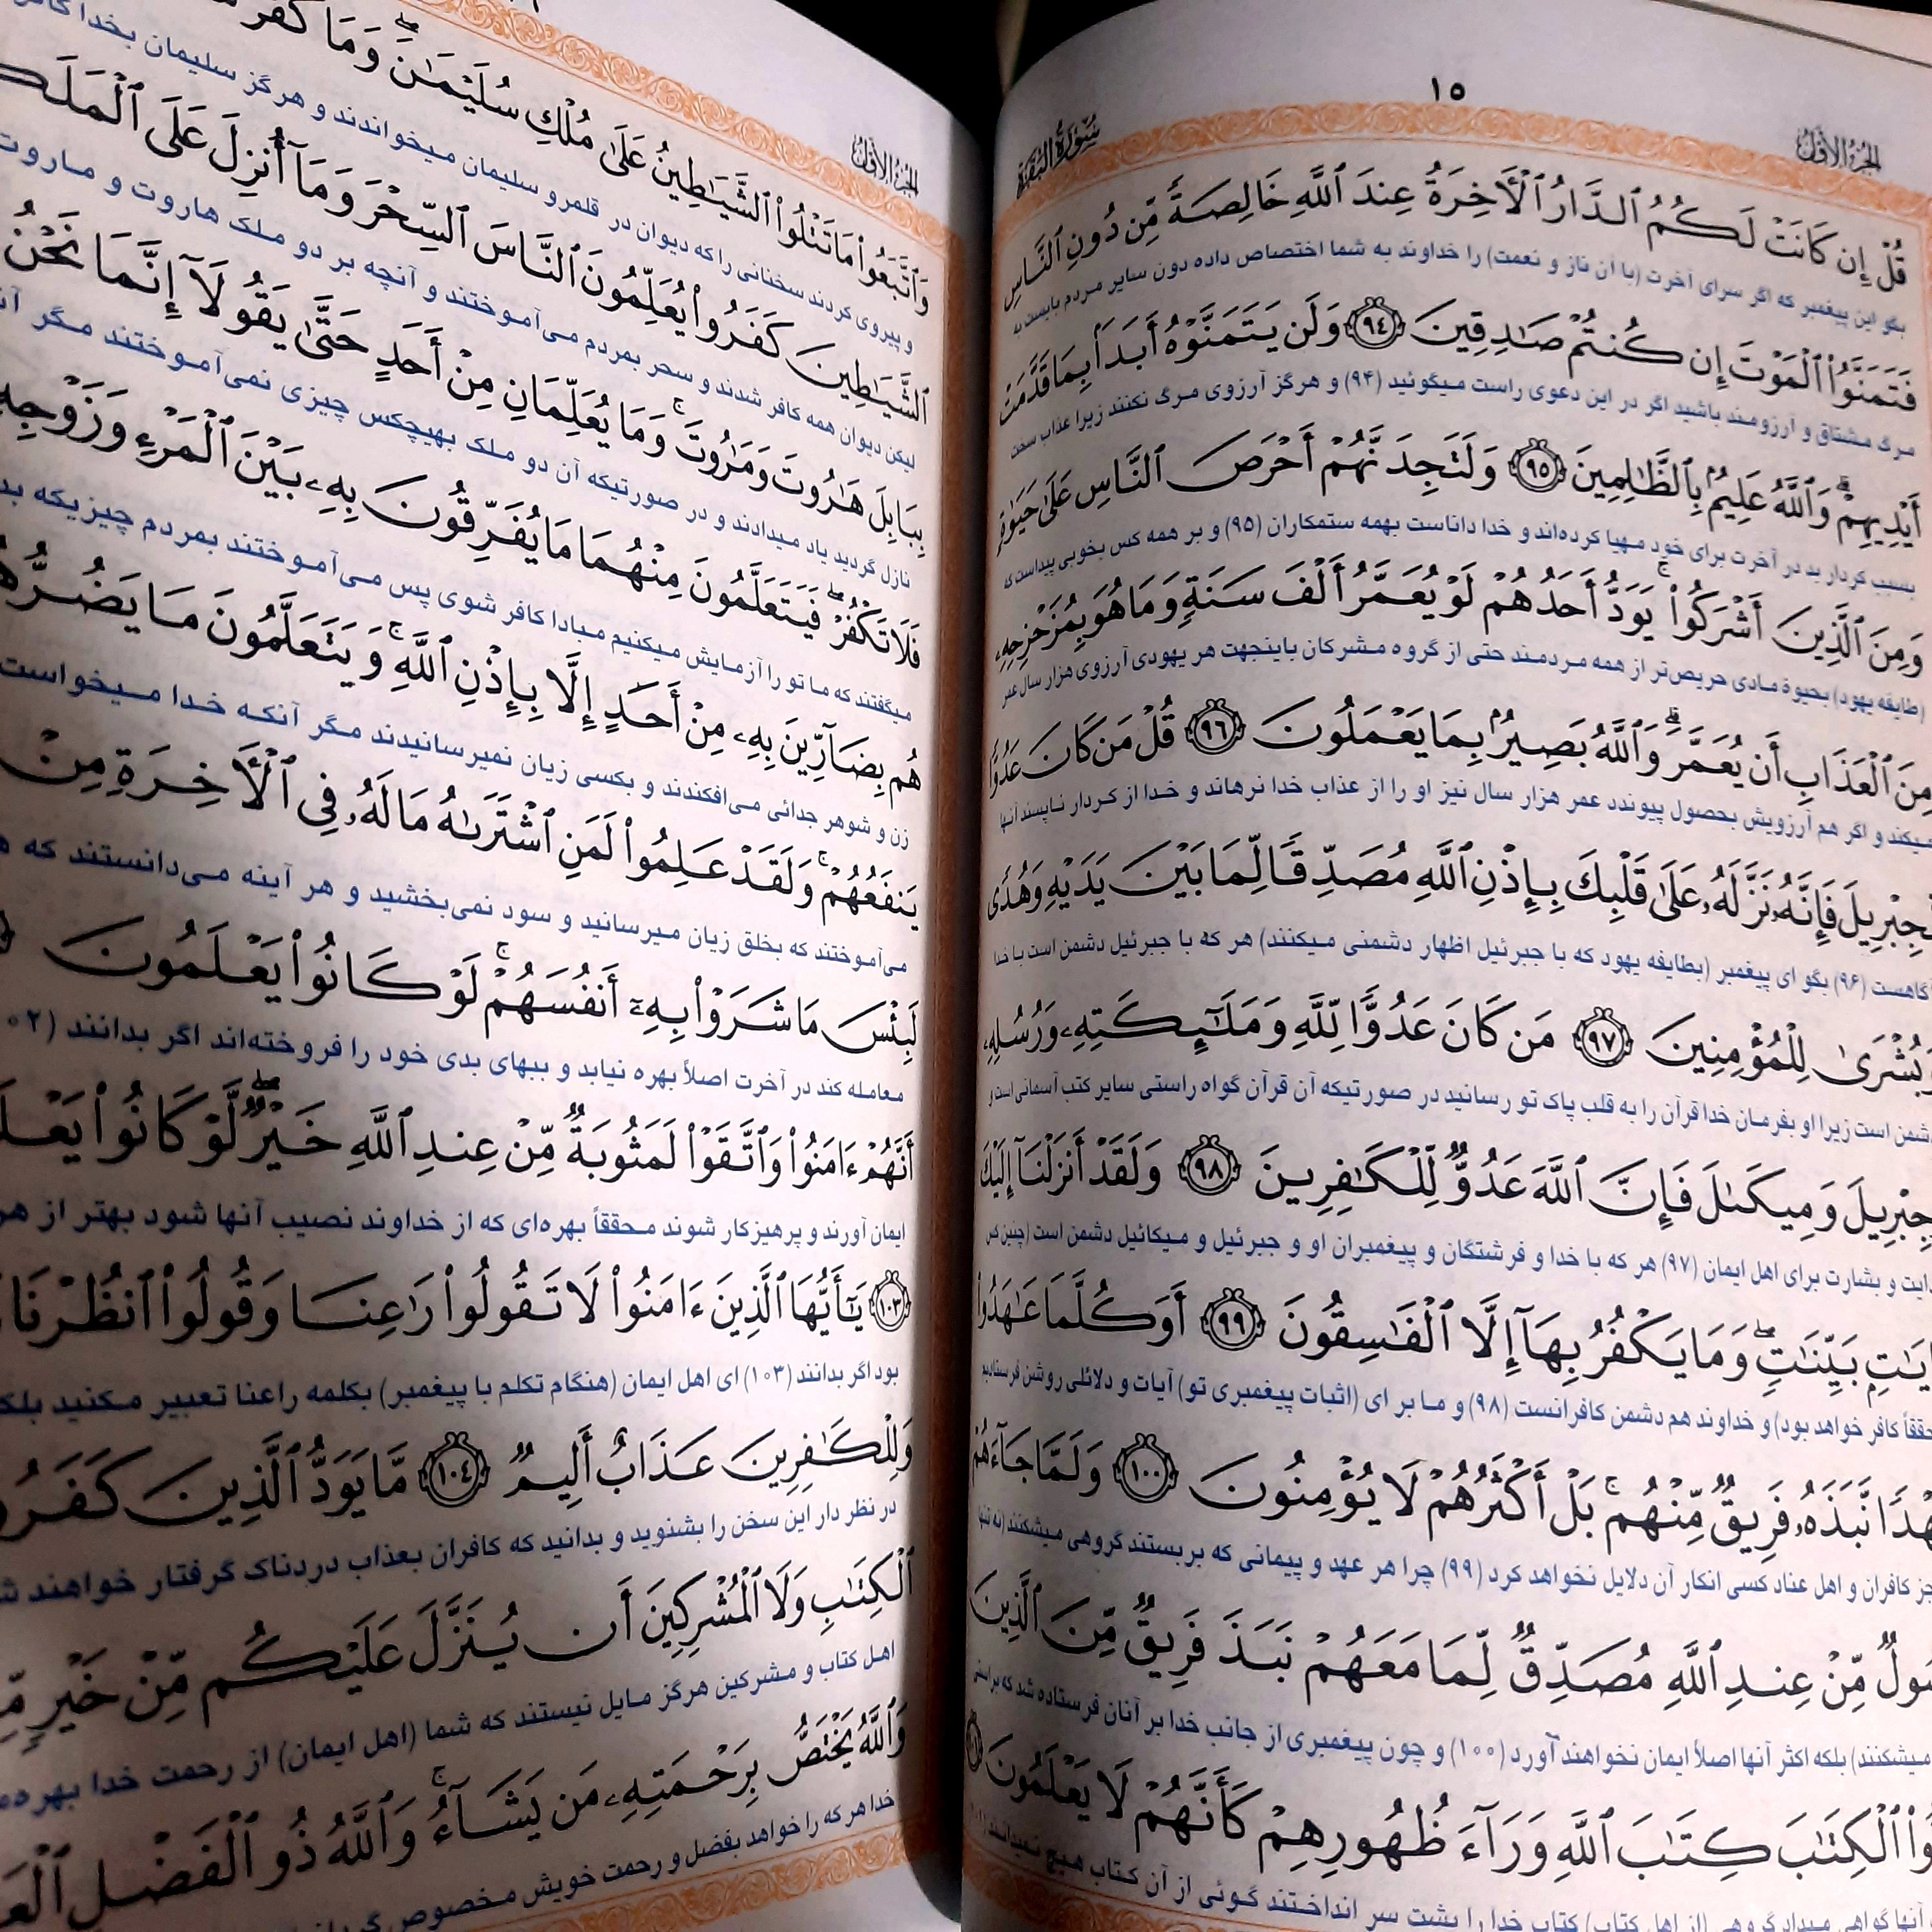 ١٥
الجزء الأول
سورة البقرة
قُلْ إِن كَانَتْ لَكُمُ ٱلدَّارُ ٱلْأَخِرَةُ عِندَ ٱللَّهِ خَالِصَةً مِّن دُونِ ٱلنَّاسِ
بگو این پیغمبر که اگر سرای آخرت (با آن ناز و نعمت) را خداوند به شما اختصاص داده دون سایر مردم بایست به
فَتَمَنَّوُا۟ ٱلْمَوْتَ إِن كُنتُمْ صَـٰدِقِينَ ﴿٩٤﴾ وَلَن يَتَمَنَّوْهُ أَبَدًۢا بِمَا قَدَّمَتْ
مرگ مشتاق و آرزومند باشید اگر در این دعوی راست میگوئید (۹۴) و هرگز آرزوی مرگ نکنند زیرا عذاب سخت
أَيْدِيهِمْ ۗ وَٱللَّهُ عَلِيمٌۢ بِٱلظَّـٰلِمِينَ ﴿٩٥﴾ وَلَتَجِدَنَّهُمْ أَحْرَصَ ٱلنَّاسِ عَلَىٰ حَيَوٰةٍ
بسبب کردار بد در آخرت برای خود مهیا کرده‌اند و خدا داناست بهمه ستمکاران (۹۵) و بر همه کس بخوبی پیداست که
وَمِنَ ٱلَّذِينَ أَشْرَكُوا۟ ۚ يَوَدُّ أَحَدُهُمْ لَوْ يُعَمَّرُ أَلْفَ سَنَةٍ وَمَا هُوَ بِمُزَحْزِحِهِۦ
(طایفه یهود) بحیوة مادی حریص‌تر از همه مردمند حتی از گروه مشرکان باینجهت هر یهودی آرزوی هزار سال عمر
مِنَ ٱلْعَذَابِ أَن يُعَمَّرَ ۗ وَٱللَّهُ بَصِيرٌۢ بِمَا يَعْمَلُونَ ﴿٩٦﴾ قُلْ مَن كَانَ عَدُوًّا
میکند و اگر هم آرزویش بحصول پیوندد عمر هزار سال نیز او را از عذاب خدا نرهاند و خدا از کردار ناپسند آنها
لِّجِبْرِيلَ فَإِنَّهُۥ نَزَّلَهُۥ عَلَىٰ قَلْبِكَ بِإِذْنِ ٱللَّهِ مُصَدِّقًا لِّمَا بَيْنَ يَدَيْهِ وَهُدًى
آگاهست (۹۶) بگو ای پیغمبر (بطایفه یهود که با جبرئیل اظهار دشمنی میکنند) هر که با جبرئیل دشمن است با خدا
وَبُشْرَىٰ لِلْمُؤْمِنِينَ ﴿٩٧﴾ مَن كَانَ عَدُوًّا لِّلَّهِ وَمَلَـٰٓئِكَتِهِۦ وَرُسُلِهِۦ
دشمن است زیرا او بفرمان خدا قرآن را به قلب پاک تو رسانید در صورتیکه آن قرآن گواه راستی سایر کتب آسمانی است و
جِبْرِيلَ وَمِيكَىٰلَ فَإِنَّ ٱللَّهَ عَدُوٌّ لِّلْكَـٰفِرِينَ ﴿٩٨﴾ وَلَقَدْ أَنزَلْنَآ إِلَيْكَ
و بشارت برای اهل ایمان (۹۷) هر که با خدا و فرشتگان و پیغمبران او و جبرئیل و میکائیل دشمن است (چنین کس
بَيِّنَـٰتٍ ۖ وَمَا يَكْفُرُ بِهَآ إِلَّا ٱلْفَـٰسِقُونَ ﴿٩٩﴾ أَوَكُلَّمَا عَـٰهَدُوا۟
کافر خواهد بود) و خداوند هم دشمن کافرانست (۹۸) و ما برای (اثبات پیغمبری تو) آیات و دلائلی روشن فرستادیم
نَّبَذَهُۥ فَرِيقٌ مِّنْهُم ۚ بَلْ أَكْثَرُهُمْ لَا يُؤْمِنُونَ ﴿١٠٠﴾ وَلَمَّا جَآءَهُمْ
جز کافران و اهل عناد کسی انکار آن دلایل نخواهد کرد (۹۹) چرا هر عهد و پیمانی که بربستند گروهی میشکنند (نه تنها
مِّنْ عِندِ ٱللَّهِ مُصَدِّقٌ لِّمَا مَعَهُمْ نَبَذَ فَرِيقٌ مِّنَ ٱلَّذِينَ
میشکنند) بلکه اکثر آنها اصلاً ایمان نخواهند آورد (۱۰۰) و چون پیغمبری از جانب خدا بر آنان فرستاده شد که براستی
ٱلْكِتَـٰبَ كِتَـٰبَ ٱللَّهِ وَرَآءَ ظُهُورِهِمْ كَأَنَّهُمْ لَا يَعْلَمُونَ
گروهی (از اهل کتاب) کتاب خدا را پشت سر انداختند گوئی از آن کتاب هیچ نمیدانند
الجزء الأول
وَٱتَّبَعُوا۟ مَا تَتْلُوا۟ ٱلشَّيَـٰطِينُ عَلَىٰ مُلْكِ سُلَيْمَـٰنَ ۖ وَمَا كَفَرَ
و پیروی کردند سخنانی را که دیوان در قلمرو سلیمان میخواندند و هرگز سلیمان بخدا کافر
ٱلشَّيَـٰطِينَ كَفَرُوا۟ يُعَلِّمُونَ ٱلنَّاسَ ٱلسِّحْرَ وَمَآ أُنزِلَ عَلَى
لیکن دیوان همه کافر شدند و سحر بمردم می‌آموختند و آنچه بر دو ملک هاروت و ماروت
بِبَابِلَ هَـٰرُوتَ وَمَـٰرُوتَ ۚ وَمَا يُعَلِّمَانِ مِنْ أَحَدٍ حَتَّىٰ يَقُولَآ إِنَّمَا نَحْنُ
نازل گردید یاد میدادند و در صورتیکه آن دو ملک بهیچکس چیزی نمی‌آموختند مگر
فَلَا تَكْفُرْ ۖ فَيَتَعَلَّمُونَ مِنْهُمَا مَا يُفَرِّقُونَ بِهِۦ بَيْنَ ٱلْمَرْءِ وَزَوْجِهِ
میگفتند که ما تو را آزمایش میکنیم مبادا کافر شوی پس می‌آموختند بمردم چیزیکه
هُم بِضَآرِّينَ بِهِۦ مِنْ أَحَدٍ إِلَّا بِإِذْنِ ٱللَّهِ ۚ وَيَتَعَلَّمُونَ مَا يَضُرُّهُ
زن و شوهر جدائی می‌افکندند و بکسی زیان نمیرسانیدند مگر آنکه خدا میخواست
يَنفَعُهُمْ ۚ وَلَقَدْ عَلِمُوا۟ لَمَنِ ٱشْتَرَىٰهُ مَا لَهُۥ فِى ٱلْأَخِرَةِ مِنْ
می‌آموختند که بخلق زیان میرسانید و سود نمی‌بخشید و هر آینه می‌دانستند که
لَبِئْسَ مَا شَرَوْا۟ بِهِۦٓ أَنفُسَهُمْ ۚ لَوْ كَانُوا۟ يَعْلَمُونَ
معامله کند در آخرت اصلاً بهره نیابد و ببهای بدی خود را فروخته‌اند اگر بدانند
أَنَّهُمْ ءَامَنُوا۟ وَٱتَّقَوْا۟ لَمَثُوبَةٌ مِّنْ عِندِ ٱللَّهِ خَيْرٌ ۖ لَّوْ كَانُوا۟
ایمان آورند و پرهیزکار شوند محققاً بهره‌ای که از خداوند نصیب آنها شود بهتر از
﴿١٠٣﴾ يَـٰٓأَيُّهَا ٱلَّذِينَ ءَامَنُوا۟ لَا تَقُولُوا۟ رَٰعِنَا وَقُولُوا۟ ٱنظُرْنَا
بود اگر بدانند (۱۰۳) ای اهل ایمان (هنگام تکلم با پیغمبر) بکلمه راعنا تعبیر مکنید
وَلِلْكَـٰفِرِينَ عَذَابٌ أَلِيمٌ ﴿١٠٤﴾ مَّا يَوَدُّ ٱلَّذِينَ كَفَرُو
در نظر دار این سخن را بشنوید و بدانید که کافران بعذاب دردناک گرفتار خواهند
ٱلْكِتَـٰبِ وَلَا ٱلْمُشْرِكِينَ أَن يُنَزَّلَ عَلَيْكُم مِّنْ خَيْرٍ
اهل کتاب و مشرکین هرگز مایل نیستند که شما (اهل ایمان) از رحمت خدا
وَٱللَّهُ يَخْتَصُّ بِرَحْمَتِهِۦ مَن يَشَآءُ ۚ وَٱللَّهُ ذُو ٱلْفَضْلِ
خدا هر که را خواهد بفضل و رحمت خویش مخصوص